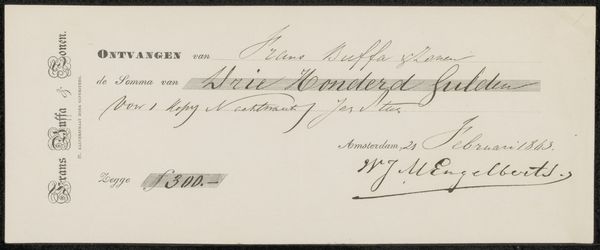 Frans Buffa & Zonen.
ONTVANGEN van Frans Buffa & Zonen
de Somma van Drie Honderd Gulden
Voor 1 kopij Nachtwacht
Amsterdam, 21 Februari 1863.
Zegge ƒ 300.-
W J M Engelberts.